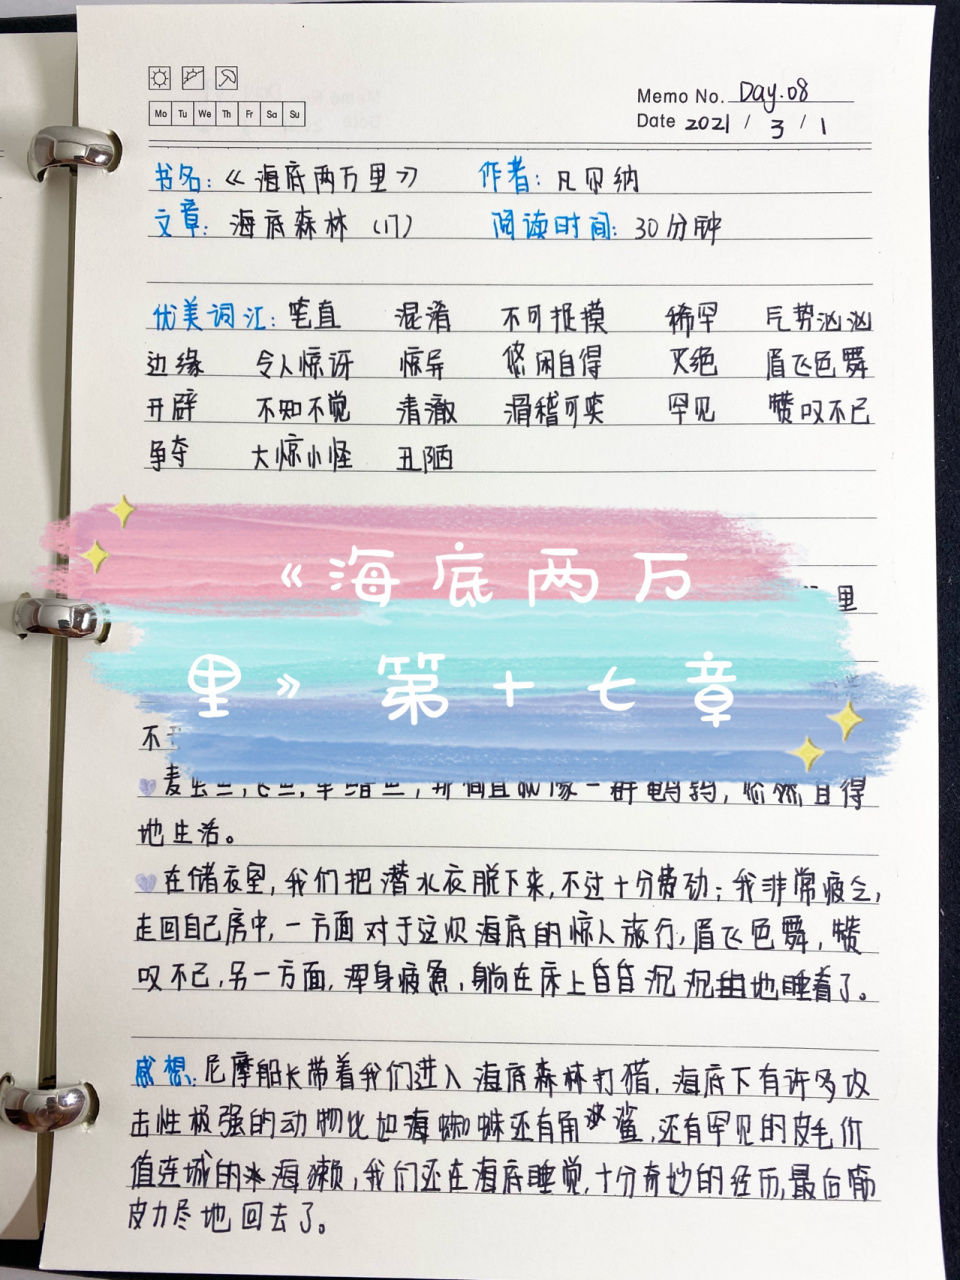 Memo No. Day.08
Mo Tu We Th Fr Sa Su
Date 2021 / 3 / 1
书名:《海底两万里》 作者:凡尔纳
文章:海底森林(17) 阅读时间:30分钟
优美词汇:笔直 混淆 不可捉摸 稀罕 气势汹汹
边缘 令人惊讶 惊异 悠闲自得 灭绝 眉飞色舞
开辟 不知不觉 清澈 滑稽可笑 罕见 赞叹不已
争夺 大惊小怪 丑陋
《海底两万
里
里》第十七章
不
地生活。
在储衣室,我们把潜水衣脱下来,不过十分费劲;我非常疲乏,
走回自己房中,一方面对于这次海底的惊人旅行,眉飞色舞,赞
叹不已,另一方面,浑身疲惫,躺在床上自自沉沉地睡着了。
感想:尼摩船长带着我们进入海底森林打猎,海底下有许多攻
击性极强的动物比如海蜘蛛还有角鲨,还有罕见的皮毛价
值连城的海獭,我们还在海底睡觉,十分奇妙的经历,最后筋
皮力尽地回去了。